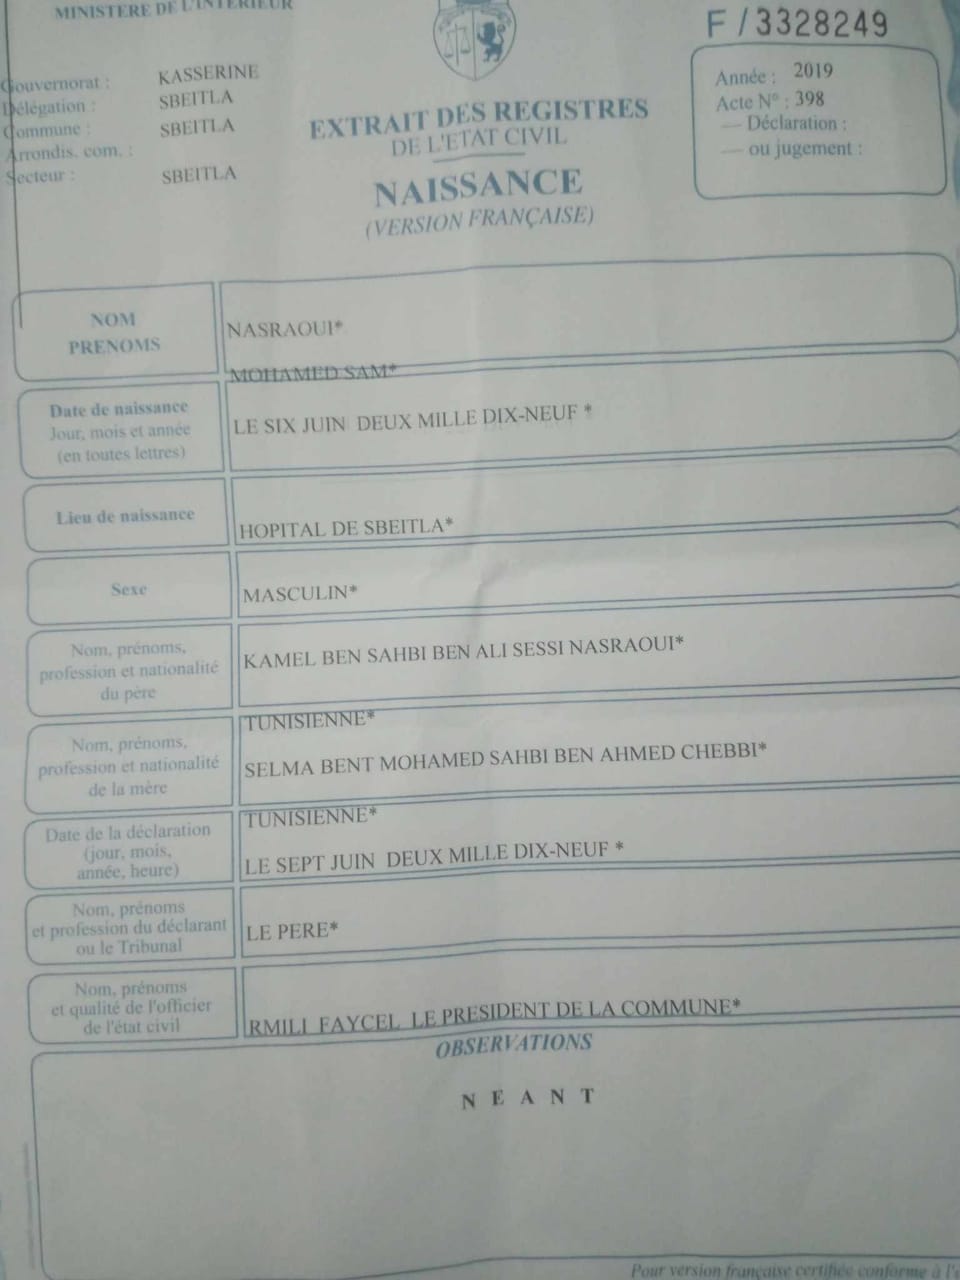 MINISTERE DE L'INTERIEUR
F / 3328249
Gouvernorat : KASSERINE
Délégation : SBEITLA
Commune : SBEITLA
Arrondis. com. :
Secteur : SBEITLA
EXTRAIT DES REGISTRES
DE L'ETAT CIVIL
NAISSANCE
(VERSION FRANÇAISE)
Année : 2019
Acte N° : 398
— Déclaration :
— ou jugement :
NOM
PRENOMS
NASRAOUI*
MOHAMED SAM*
Date de naissance
Jour, mois et année
(en toutes lettres)
LE SIX JUIN DEUX MILLE DIX-NEUF *
Lieu de naissance
HOPITAL DE SBEITLA*
Sexe
MASCULIN*
Nom, prénoms,
profession et nationalité
du père
KAMEL BEN SAHBI BEN ALI SESSI NASRAOUI*
TUNISIENNE*
Nom, prénoms,
profession et nationalité
de la mère
SELMA BENT MOHAMED SAHBI BEN AHMED CHEBBI*
TUNISIENNE*
Date de la déclaration
(jour, mois,
année, heure)
LE SEPT JUIN DEUX MILLE DIX-NEUF *
Nom, prénoms
et profession du déclarant
ou le Tribunal
LE PERE*
Nom, prénoms
et qualité de l'officier
de l'état civil
RMILI FAYCEL LE PRESIDENT DE LA COMMUNE*
OBSERVATIONS
N E A N T
Pour version française certifiée conforme à l'